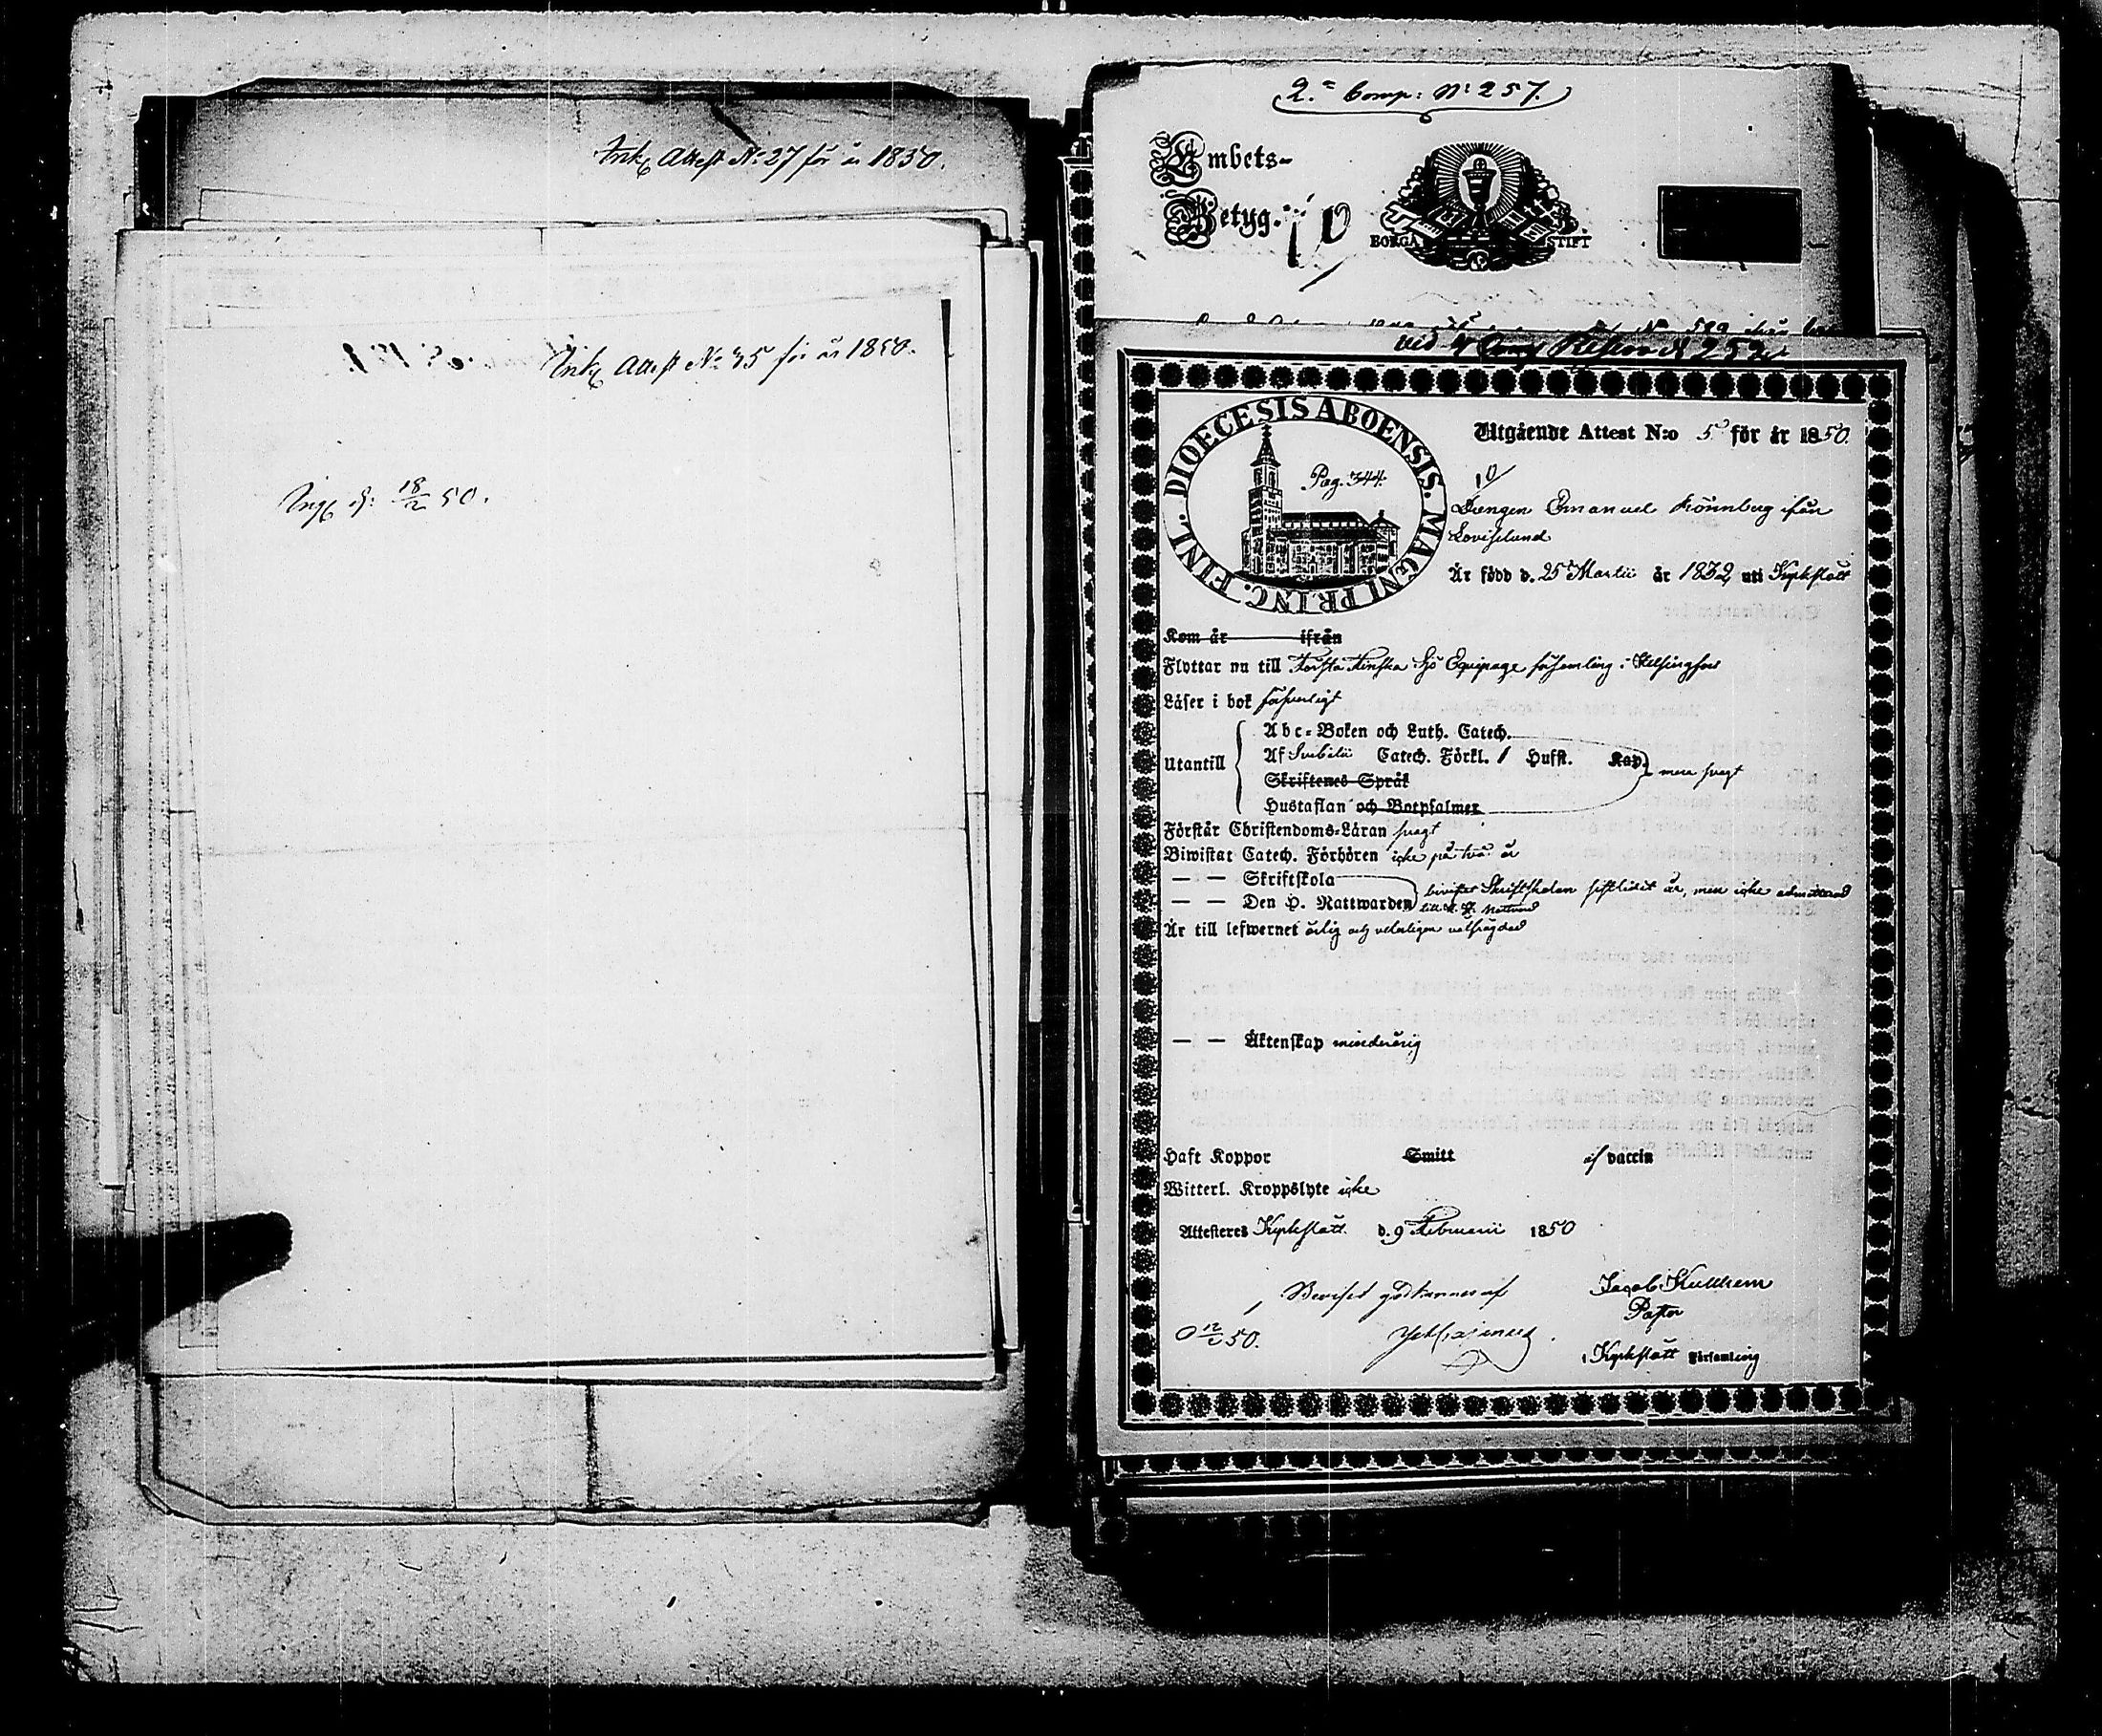 Ink. Attest No 27 för år 1850.
Ink. Attest No 35 för år 1850.
Ing. d: 18/2 50.
2:a Comp: No 257.
Embets-
Betyg.
10
BORGÅ STIFT
No 529
vid 4 Comp 252
DIOECESIS ABOENSIS. MAGNI PRINC. FINL.
Pag. 344.
Utgående Attest N:o 5 för år 1850.
10
Drengen Emanuel Rönnberg ifrån
Lovislund
Är född d. 25 Martii år 1832 uti Kyrkslätt
Kom år ifrån
Flyttar nu till Första Finska Sjö Equipage församling i Helsingfors
Läser i bok försvarligt
Utantill
Abc-Boken och Luth. Catech.
Af Svebilii Catech. Förkl. 1 Hufst. Kap.
Skriftenes Språk
Hustaflan och Botpsalmer
mera svagt
Förstår Christendoms-Läran svagt
Biwistat Catech. Förhören icke på två år
— — Skriftskola
— — Den H. Nattwarden
bivistat Skriftskolan sistlidit år, men icke admitterad
till H. H. Nattvard
Är till lefwernet ärlig och veterligen välfrägdad
— — Äktenskap minderårig
Haft Koppor Smitt af vaccin
Witterl. Kroppslyte icke
Attesteres Kyrkslätt d. 9 Februarii 1850
Beviset godkännes af
Jacob Kullhem
Pastor
12/2 50.
i Kyrkslätt Församling